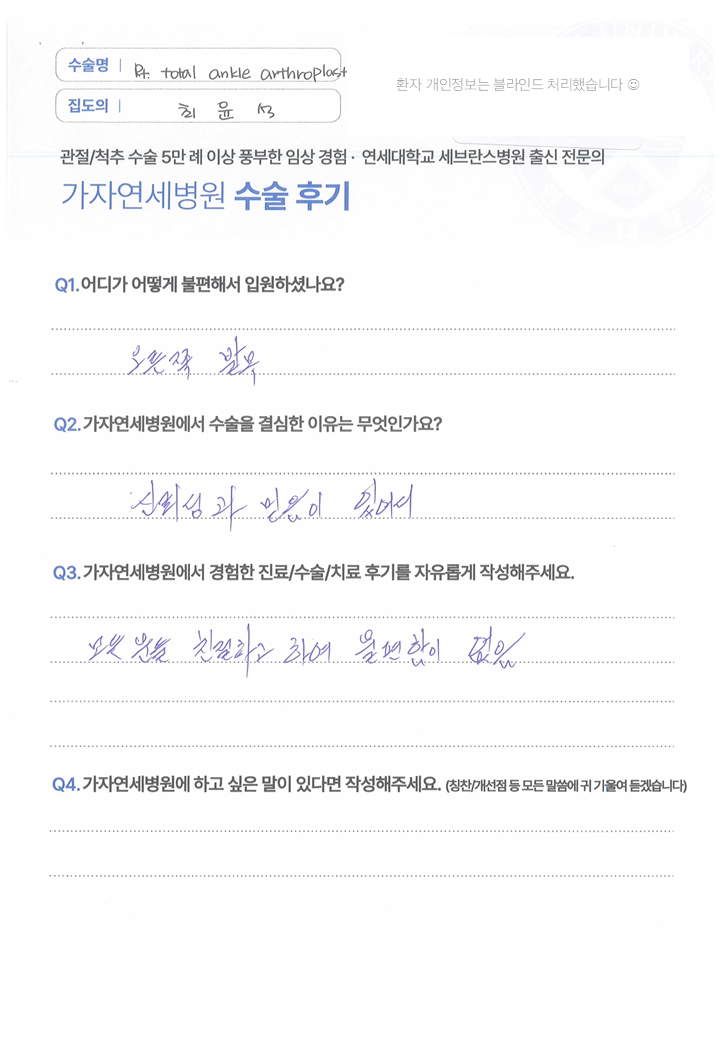 수술명 | Rt. total ankle arthroplast
환자 개인정보는 블라인드 처리했습니다 ☺
집도의 | 최 윤 석
관절/척추 수술 5만 례 이상 풍부한 임상 경험 · 연세대학교 세브란스병원 출신 전문의
가자연세병원 수술 후기
Q1. 어디가 어떻게 불편해서 입원하셨나요?
오른쪽 발목
Q2. 가자연세병원에서 수술을 결심한 이유는 무엇인가요?
신뢰성과 믿음이 있어서
Q3. 가자연세병원에서 경험한 진료/수술/치료 후기를 자유롭게 작성해주세요.
모든 분들 친절하고 하여 불편함이 없음
Q4. 가자연세병원에 하고 싶은 말이 있다면 작성해주세요. (칭찬/개선점 등 모든 말씀에 귀 기울여 듣겠습니다)